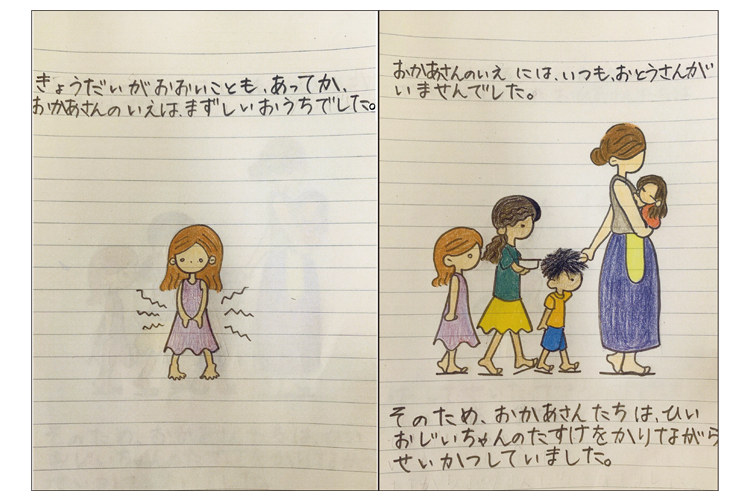 きょうだいがおおいことも、あってか、
おかあさんのいえは、まずしいおうちでした。
おかあさんのいえ には、いつも、おとうさんが
いませんでした。
そのため、おかあさんたちは、ひい
おじいちゃんのたすけをかりながら
せいかつしていました。